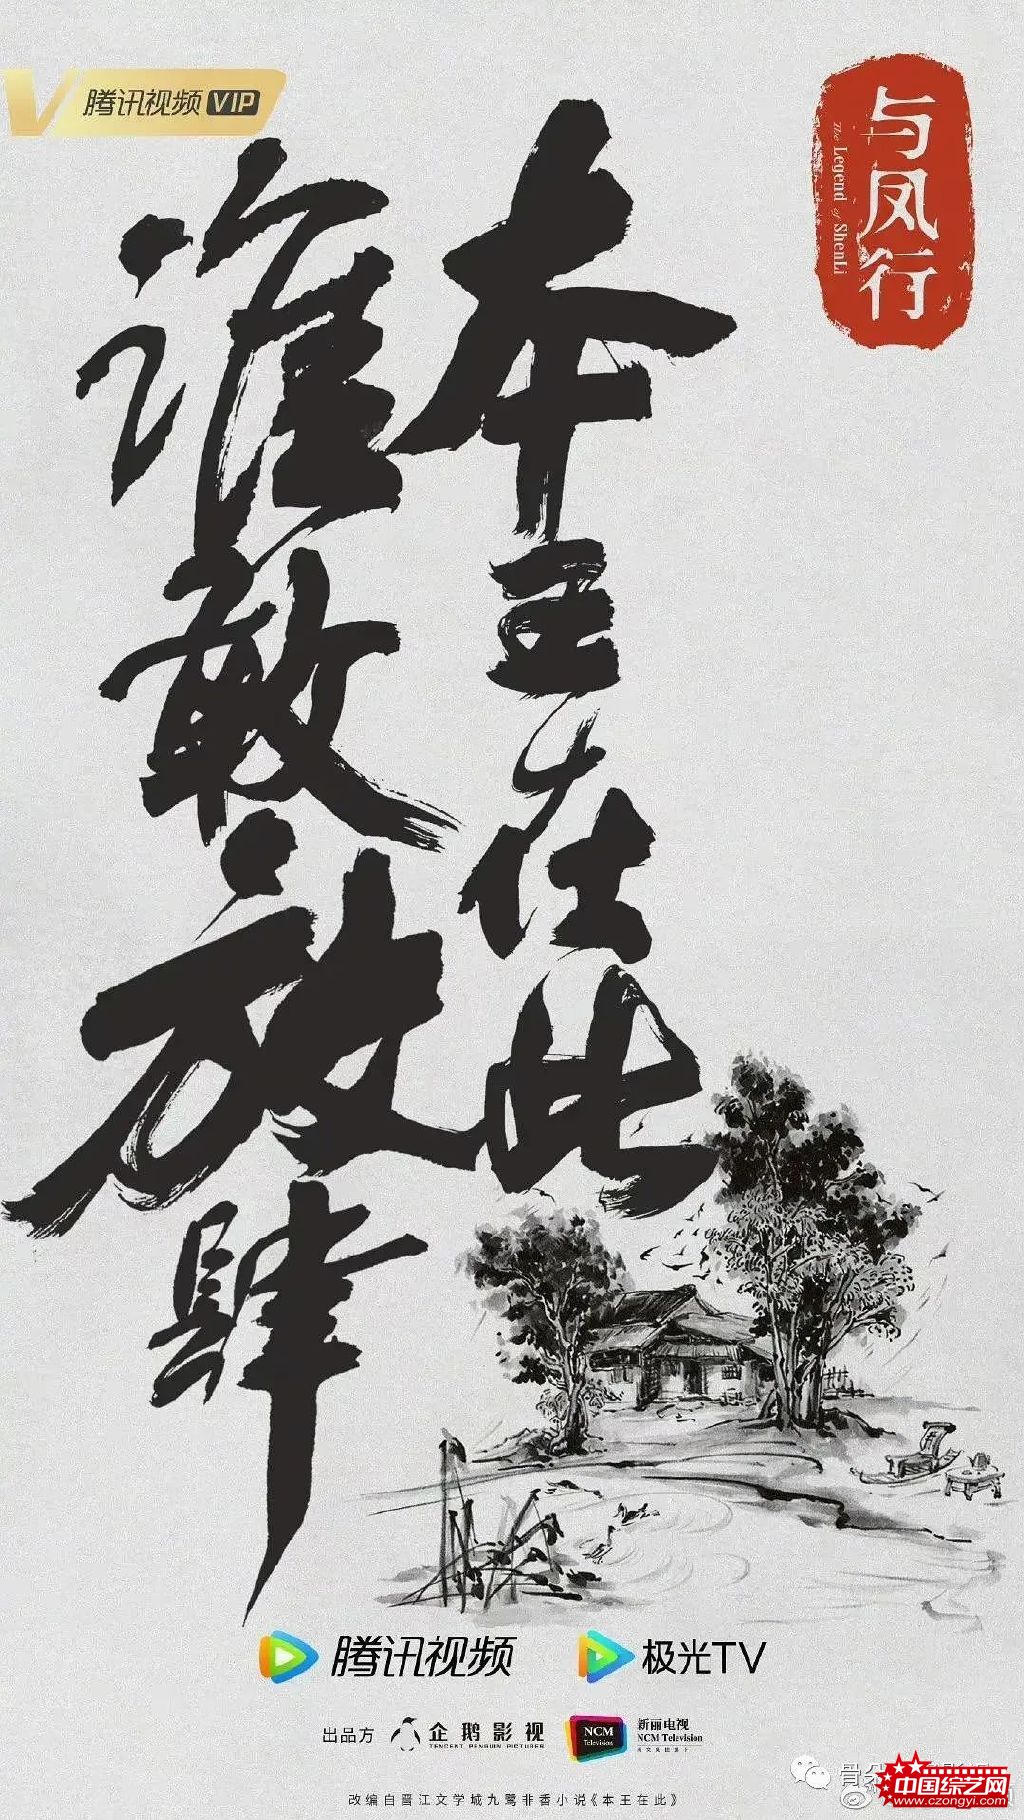 腾讯视频VIP
与凤行
The Legend of ShenLi
本王在此
谁敢放肆
腾讯视频
极光TV
出品方
企鹅影视
TENCENT PENGUIN PICTURES
NCM
Television
新丽电视
NCM Television
骨朵
中国综艺网
www.czongyi.com
改编自晋江文学城九鹭非香小说《本王在此》